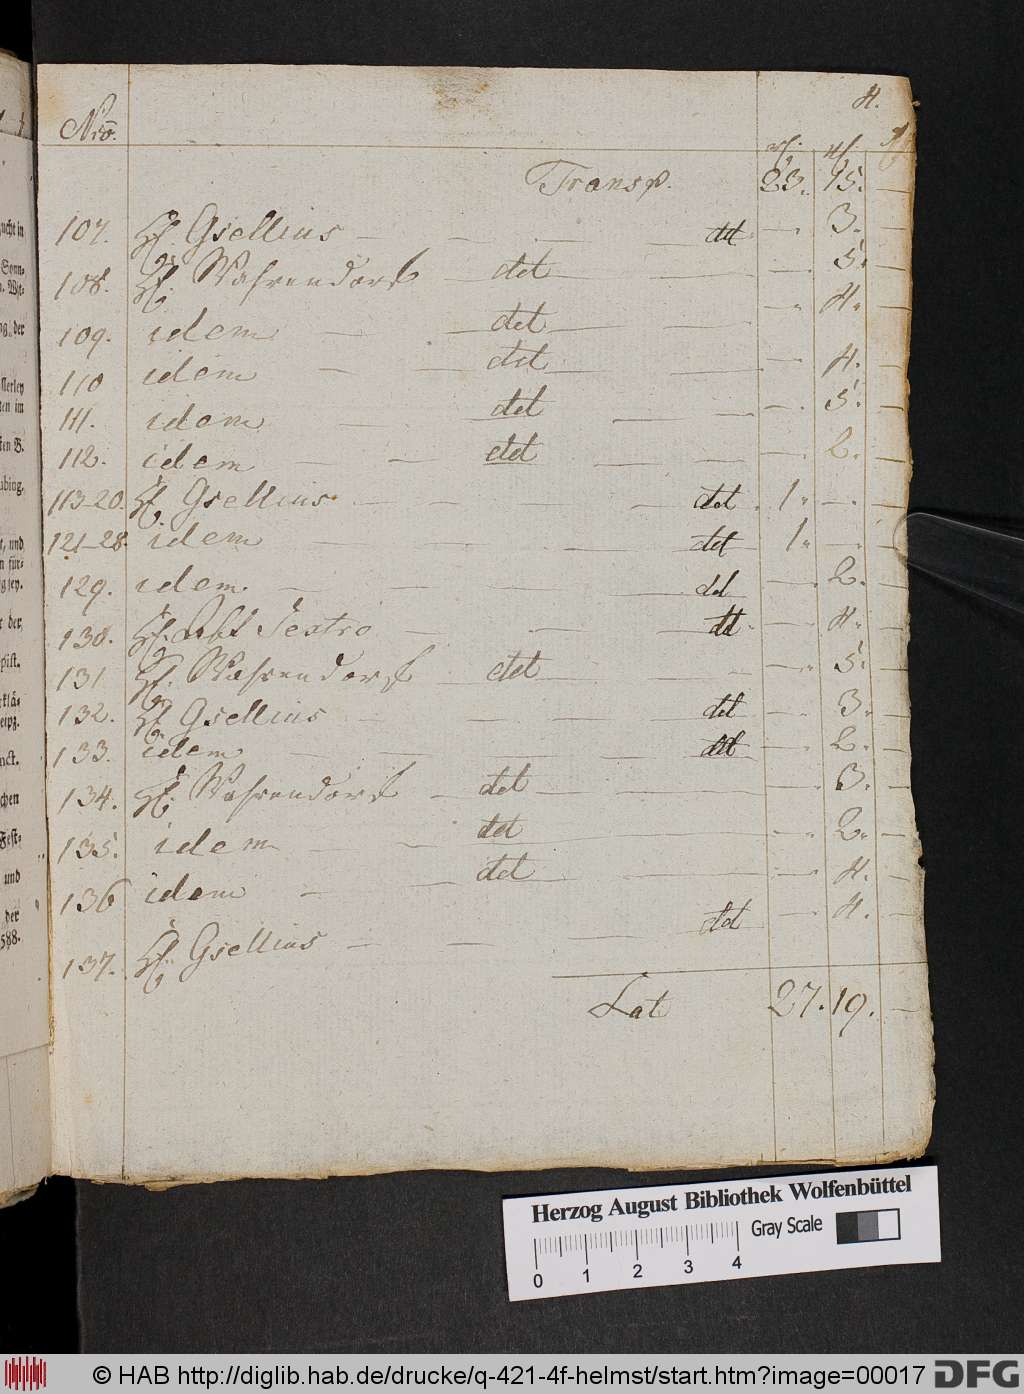 4.
Nrō.
Transp. 23. 15. —
107. H. Gsellius — — — — dd — 3. —
108. H. Wahrendorf ddt — — — 5. —
109. idem — — ddt — — — 4. —
110 idem — — ddt — — — 4. —
111. idem — — ddt — — — 5. —
112. idem — — ddt — — — 2. —
113–20. H. Gsellius — — — — ddt 1. — —
121–28. idem — — — — ddt 1. — —
129. idem. — — — — dd — 2. —
130. H. Abt — — — dd — 4. —
131 H. Wahrendorf — ddt — — — 5. —
132. H. Gsellius — — — — dd — 3. —
133. idem — — dd — 2. —
134. H. Wahrendorf — ddt — — — 3. —
135. idem — — ddt — — — 2. —
136 idem — — ddt — — — 4. —
137. H. Gsellius — — — dd — 4. —
Lat 27. 19. —
Herzog August Bibliothek Wolfenbüttel
Gray Scale
0 1 2 3 4
© HAB http://diglib.hab.de/drucke/q-421-4f-helmst/start.htm?image=00017
DFG